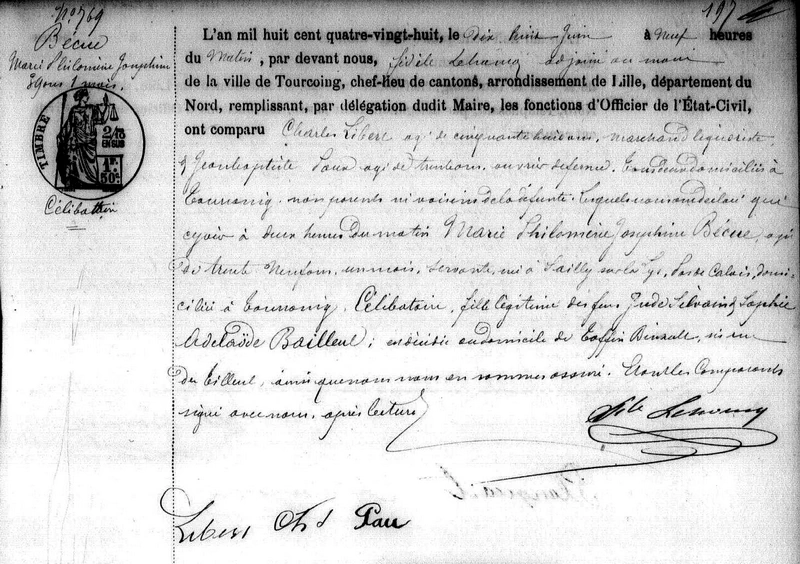 N° 769
Bécue
Marie Philomène Joséphine
39 ans 1 mois.
TIMBRE
2/10 EN SUS
1F. 50c.
Célibataire
197
L'an mil huit cent quatre-vingt-huit, le dix huit Juin à neuf heures
du matin, par devant nous, fidèle adjoint au maire
de la ville de Tourcoing, chef-lieu de cantons, arrondissement de Lille, département du
Nord, remplissant, par délégation dudit Maire, les fonctions d'Officier de l'État-Civil,
ont comparu Charles Libert agé de cinquante huit ans, marchand
& Jean baptiste agé de trente ans, ouvrier Tous deux domiciliés à
Tourcoing, non parents ni voisins de la défunte. Lesquels nous ont déclaré que
à deux heures du matin Marie Philomène Joséphine Bécue, agée
de trente neuf ans, un mois, servante, née à Sailly sur la Lys, Pas de Calais, domi-
ciliée à Tourcoing, Célibataire, fille légitime des feus Jude & Sophie
Adélaïde Bailleul; est décédée au domicile de sis rue
du Tilleul, ainsi que nous nous en sommes assuré. Et ont les Comparants
signé avec nous, après lecture
Libert Ch